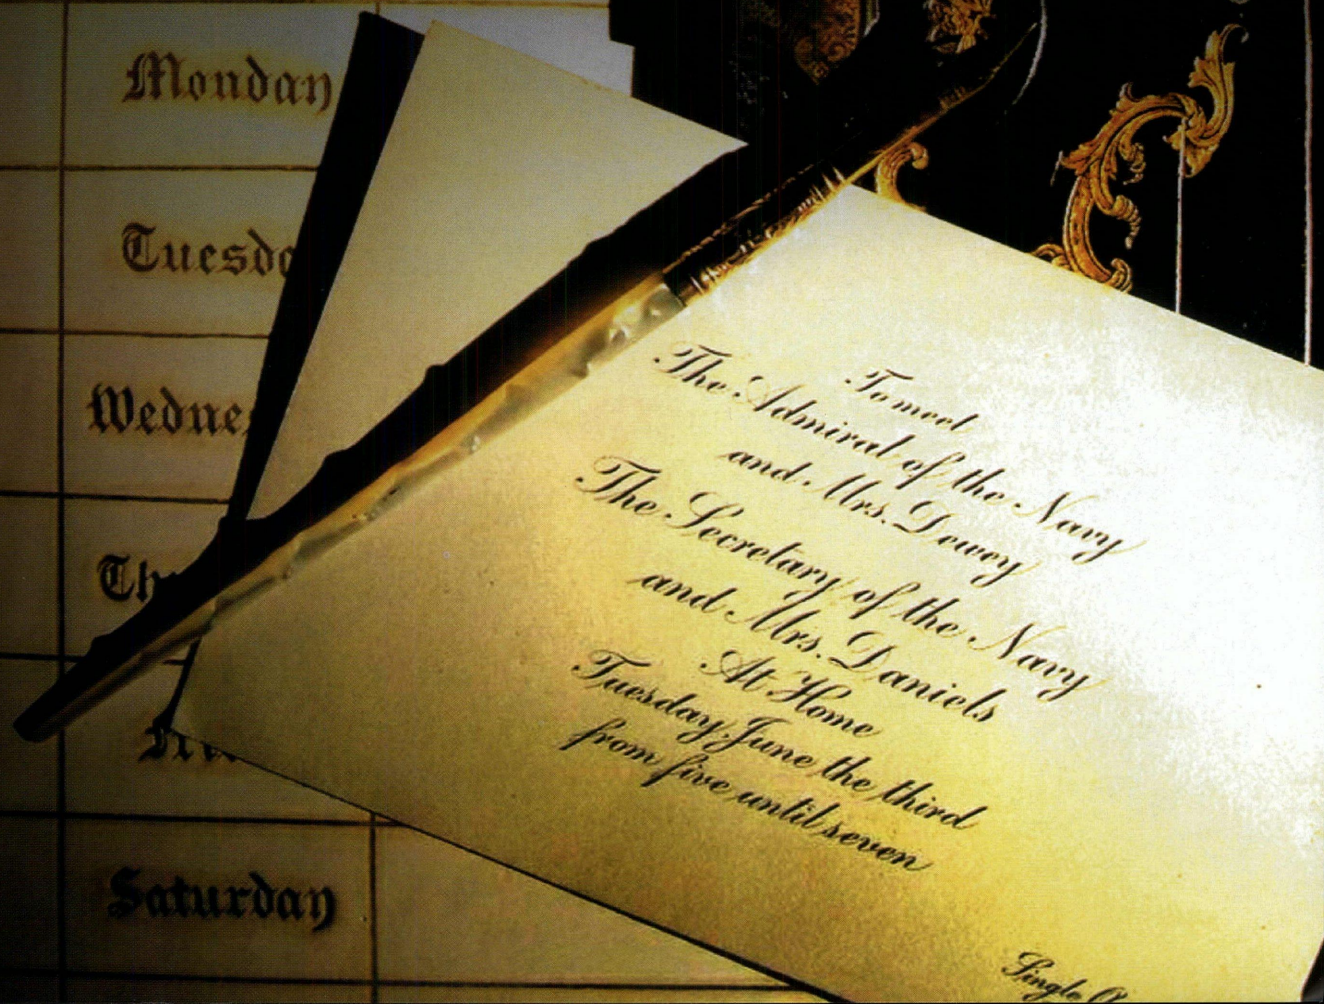 Monday
Tuesda
Wednes
Th
Fri
Saturday
To meet
The Admiral of the Navy
and Mrs. Dewey
The Secretary of the Navy
and Mrs. Daniels
At Home
Tuesday, June the third
from five until seven
Single